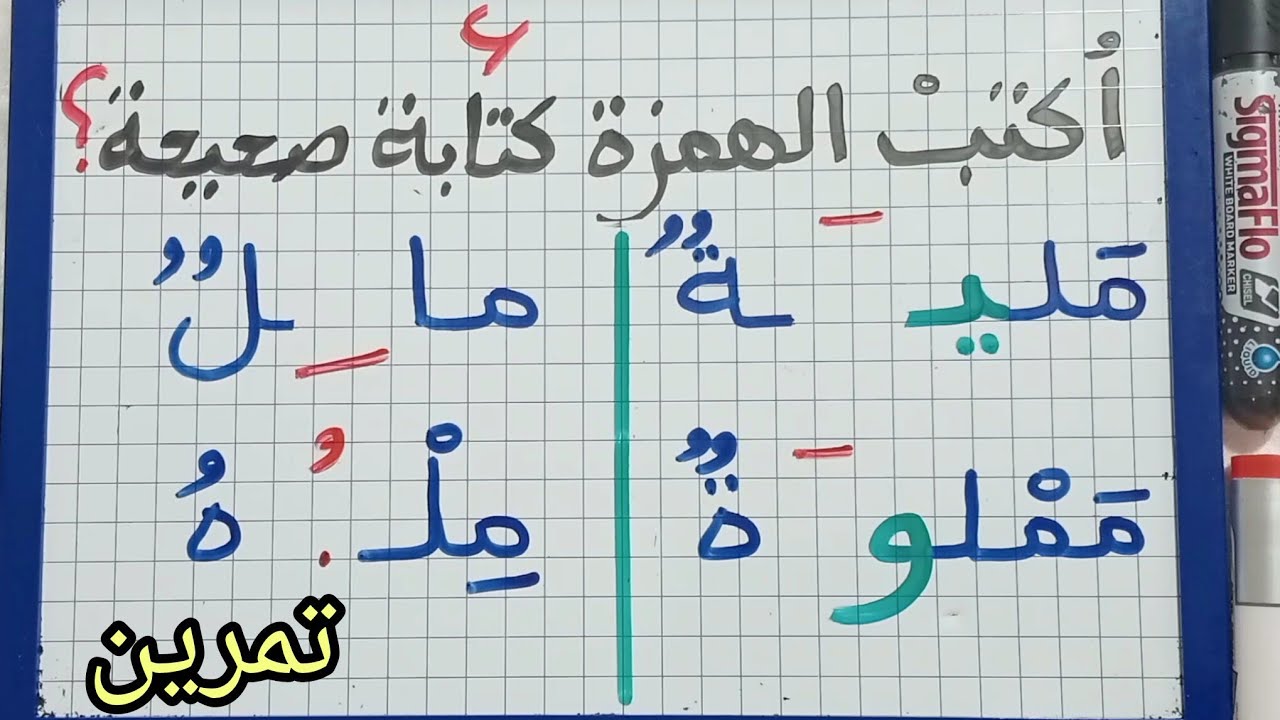 ء
أُكتبْ الهمزة كتابة صحيحة؟
مَليـ ـَـ ـةٌ
ما ـِـ ـلٌ
مَمْلو ـَـ ةٌ
مِلْـ ـُـ هُ
تمرين
SigmaFlo
WHITE BOARD MARKER
CHISEL
LIQUID